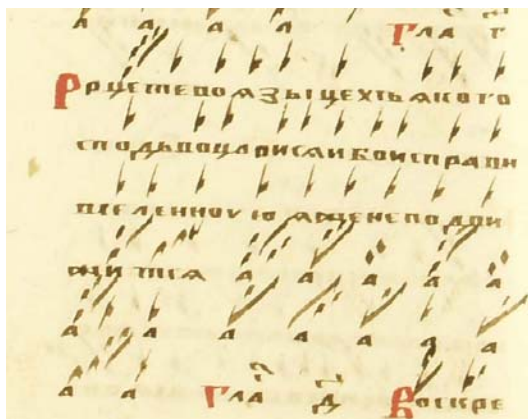 а а а а Гла г
Ррцетевоꙗзыцехъꙗкого
сподьвоцарисѧибоисправи
вселенноуюꙗженеподви
житсѧ а а а а а
а а а а а а а
а а Гла д Воскре